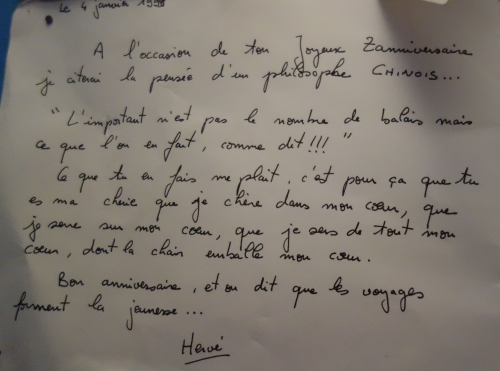 le 4 janvier 1998
A l'occasion de ton Joyeux Zanniversaire
je citerai la pensée d'un philosophe CHINOIS...
"L'important n'est pas le nombre de balais mais
ce que l'on en fait, comme dit!!! "
Ce que tu en fais me plaît, c'est pour ça que tu
es ma cherie que je chère dans mon cœur, que
je serre sur mon cœur, que je sers de tout mon
cœur, dont la chair emballe mon cœur.
Bon anniversaire, et on dit que les voyages
forment la jeunesse...
Hervé